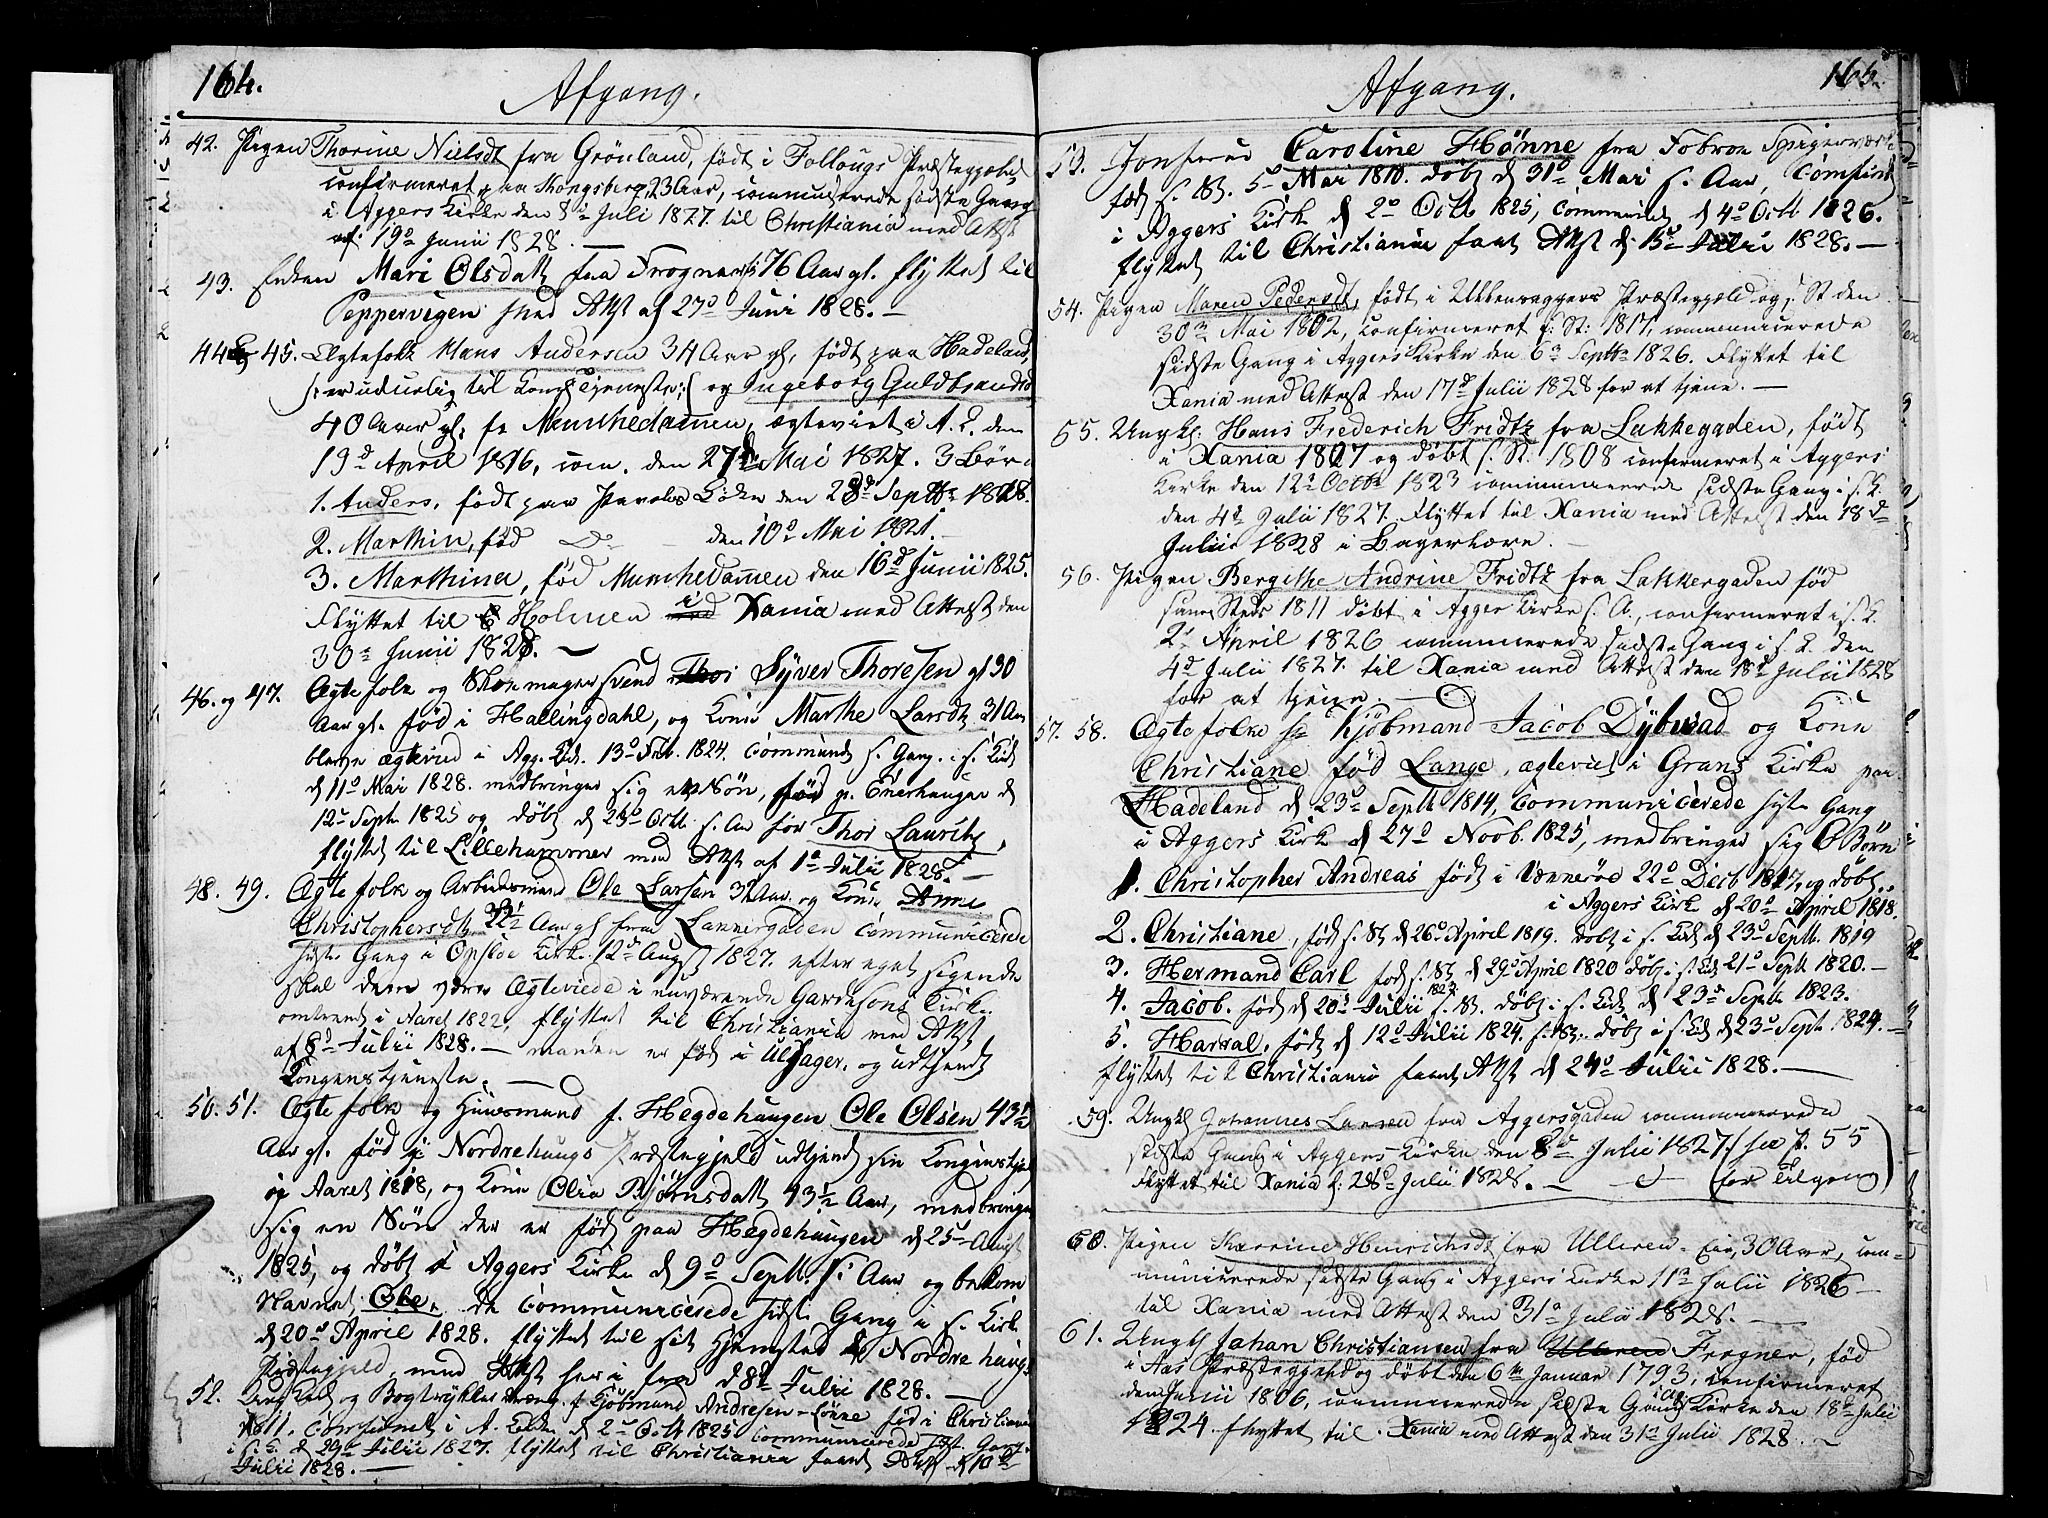 164.
Afgang.
42. Pigen Thorine Nielsdt fra Grønland, født i Follougs Præstegjeld
confirmeret paa Kongsberg, 23 Aar, communicerede sidste Gang
i Aggers Kirke den 8de Juli 1827. til Christiania med Attst
af 19d Junii 1828. —
43. Enken Mari Olsdatt fra Frogner, 76 Aar gl. flyttet til
Peppervigen med Attst af 27d Juni 1828. —
44 og 45. Ægtefolk Hans Andersen 34 Aar gl, født paa Hadeland
/: er uduelig til Kongs Tjeneste :/ og Ingeborg Guldbrandsd
40 Aar gl. fra Munchedammen, ægteviet i A. K. den
19d April 1816, com. den 27d Mai 1827. 3 Børn
1. Anders, født paa den 28d Septbr 1818.
2. Marthin, fød D den 10d Mai 1821.
3. Marthina, fød Munchedammen den 16d Junii 1825.
Flyttet til Holmen i Xania med Attest den
30d Junii 1828. —
46. og 47. Ægtefolk og Skomagersvend Syver Thoresen gl 30
Aar gl. fød i Hallingdahl, og Kone Marthe Larsdt 31 Aar
bleve ægteviet i Agg. Kirk. 13d Feb. 1824. Communic s. Gang i s. Kirk
d 11d Mai 1828. medbringer sig en Søn, fød p. Enerhaugen d
12d Septr 1825 og døbt d 23d Octb s. Aar før Thor Lauritz,
flyttet til Lillehammer med Attst af 1d Julii 1828. —
48. 49. Ægtefolk og Arbeidsmand Ole Larsen 32 Aar og Kone Anne
Christophersdt Aar gl fra communicerede
sidste Gang i Opsloe Kirke 12d Augst 1827. efter eget sigende
skal dem være Ægteviede i nuværende Garnisons Kirk
omtrent i Aaret 1822, flyttet til Christiania med Attst
af 8d Julii 1828. — manden er fød i Ullsager, og udtjendt
Kongens tjeneste. —
50. 51. Ægtefolk og Huusmand f. Hegdehaugen Ole Olsen 43½
Aar gl. fød i Nordrehaugs Præstegjeld udtjendt sin Kongenstje
i Aaret 1818, og Kone Olia Bjørnsdatt 43½ Aar, medbringer
sig en Søn der er født paa Hegdehaugen d 25d Augst
1825, og døbt i Aggers Kirke d 9d Septb. s. Aar og bekom
Navnet, Ole, de communicerede sidste Gang i s. Kirk
d 20d April 1828. flyttet til sit Hjemsted Nordrehaugs
Præstegjeld, med Attst her i fra d 8d Julii 1828. —
52. Ungkarl og Bogtrykker f. Kjøbmand Andresen Lønne fød i Christiania
1811. Confirmet i A. Kirken d 2d Octb 1825 communicerede sidst Gang
i s. K. d 29d Julii 1827. flyttet til Christiania frant Attst d 10d
Julii 1828. —
165.
Afgang.
53. Jomfrue Caroline Hønne fra Fobroe Spigerværk
født s. St. 5d Mai 1810. døbt d 31d Mai s. Aar, Comfirm
i Aggers Kirk d 2d Octb 1825, Communict d 4d Octb 1826.
flyttet til Christiania frant Attst d. 15d Julii 1828. —
54. Pigen Maren Pedersdt, født i Præstegjeld og s. St den
30d Mai 1802, confirmeret s. St: 1817, communicerede
sidste Gang i Aggers Kirke den 6d Septbr 1826. Flyttet til
Xania med Attest den 17d Julii 1828 for at tjene. —
55. Ungkl. Hans Frederich Fridtz fra Lakkegaden, født
i Xania 1807 og døbt s. St. 1808 confirmeret i Aggers
Kirke den 12d Octbr 1823 communicerede sidste Gang i s. K.
den 4d Julii 1827. Flyttet til Xania med Attest den 18d
Julii 1828 i Bagerlære. —
56. Pigen Bergithe Andrine Fridtz fra Lakkegaden fød
samme Steds 1811 døbt i Agger Kirke s. A., confirmeret i s. K.
2d April 1826 communicerede sidste Gang i s. K. den
4d Julii 1827. til Xania med Attest den 18d Julii 1828
for at tjene. —
57. 58. Ægtefolk Kjøbmand Jacob Dybwad og Kone
Christiane fød Lange, ægteviet i Grans Kirke paa
Hadeland d 23d Septb 1814, communicerede sidste Gang
i Aggers Kirk d 27d Novb. 1825, medbringer sig 5 Børn
1. Christopher Andreas født i 22d Decb 1817, og døbt
i Aggers Kirk d 20d April 1818.
2. Christiane, fød s. St d 26d April 1819. døbt i s. Kirk d 23d Septb. 1819
3. Hermand Carl fød s. St d 29d April 1820 døbt i s. Kirk 21d Septb 1820. —
4. Jacob. fød d 20d Julii 1823 s. St. døbt i s. Kirk d 23d Septb 1823.
5. Harral, født d 12d Julii 1824. s. St. døbt i s. Kirk d 23d Sept 1824. —
flyttet til Christiania frant Attst d 24d Julii 1828. —
59. Ungkl Johannes Larsen fra Aggersgaden communicerede
sidste Gang i Aggers Kirke den 8de Julii 1827. (see p. 55
Flyttet til Xania d. 28d Julii 1828. — (for Tilgang)
60. Pigen Karrine Henrichsdt fra Ulleren Eie, 30 Aar, com-
municerede sidste Gang i Aggers Kirke 11d Julii 1826 —
til Xania med Attest den 31d Julii 1828. —
61. Ungkl Johan Christiansen fra Ulleren Frogner, fød
i Aas Præstegjeld og døbt den 6te Januar 1793, confirmeret
den Junii 1806, communicerede sidste Gang i Agg Kirke den 18d Julii
1824. flyttet til Xania med Attest den 31d Julii 1828. —